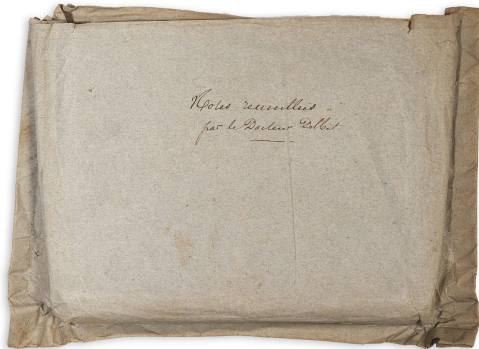 Notes recueillies
par le Docteur